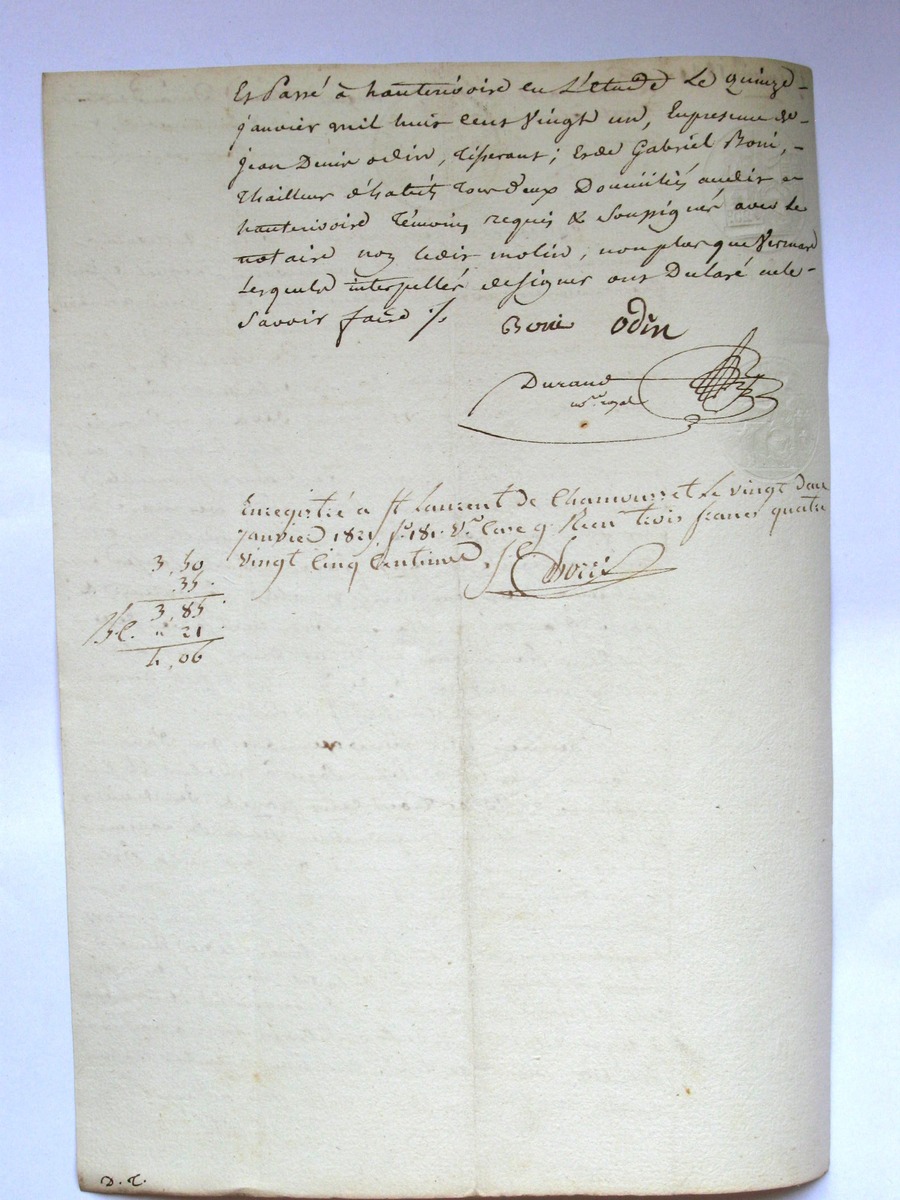 Et Passé à hauterivoire en L'étude Le quinze
janvier mil huit cent vingt un, En presence de
jean Denis odin, Tisserant; Et de Gabriel Boni,
Thailleur d'habits Tous deux Domiciliés audit
hauterivoire Témoins requis & Soussignés avec Le
notaire non ledit molin, non plus que Vermare
Lesquels interpellés de signer ont Déclaré ne le
Savoir faire ./.
Boni odin
Durand
n.re royal
Enregistré a St Laurent de Chamousset Le vingt deux
janvier 1821 f.o 181. V.o Case 9 Recu trois francs quatre
vingt Cinq Centimes
3,50
.35
3,85
" 21
4,06
D. T.